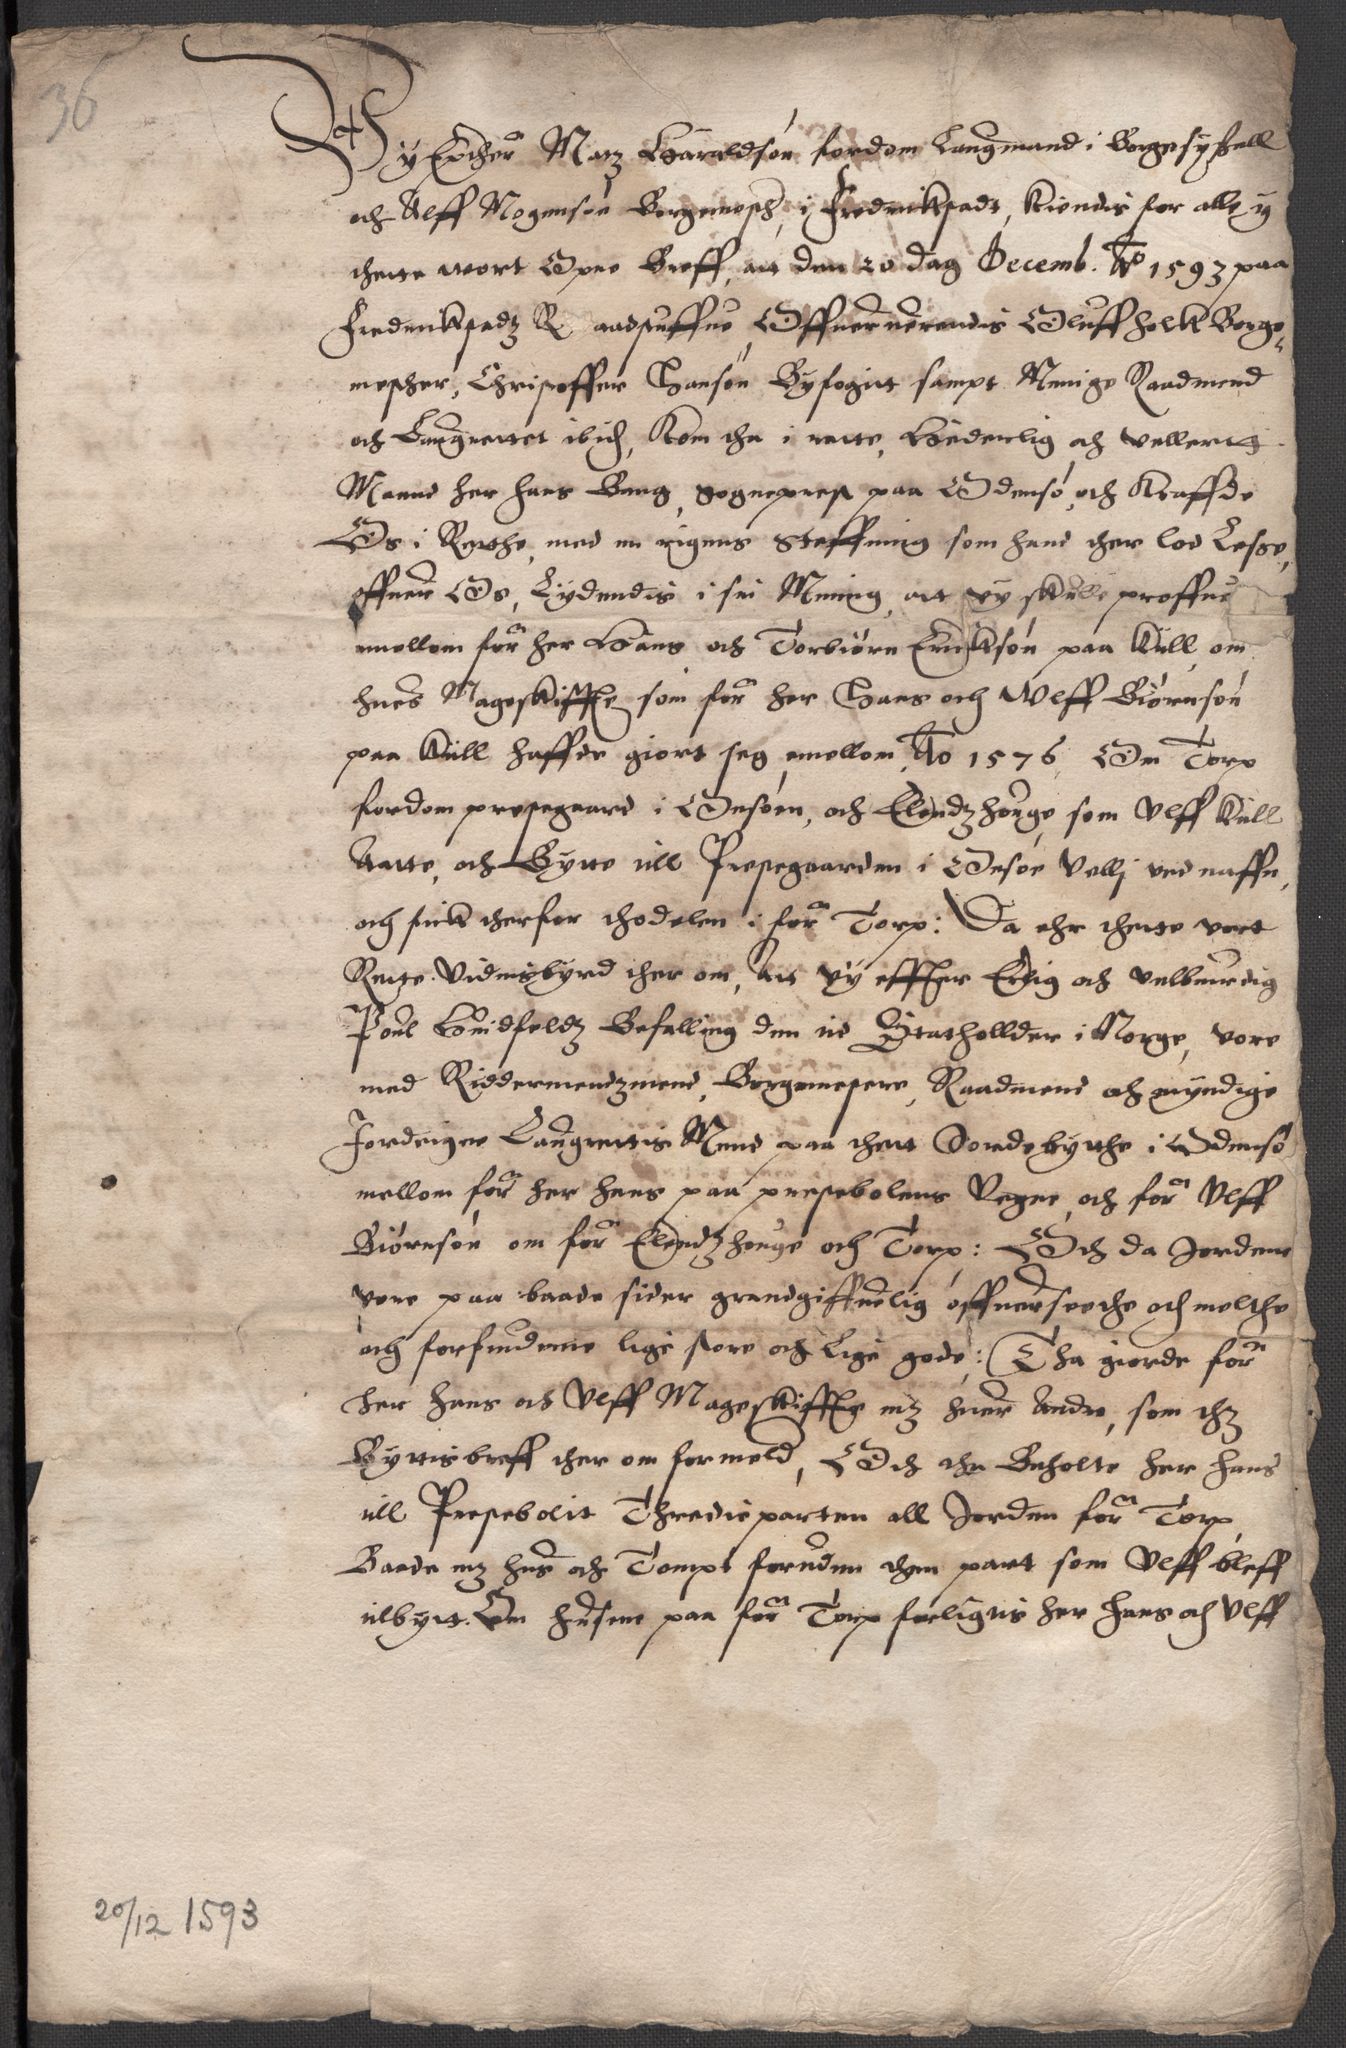 36
Vy Epther Matz Haraldsøn fordom Laugmand i Borgesyssell
och Alff Mogensøn Borgemesth, i Fredrikstadt, Kiendis for alle y
thette wort Opne Breff, att den 20 dag Decemb. Ao 1593 paa
Frederikstadtz Raadstuffue, Offuerwerendis Oluff holck Borge-
mesther, Christoffer Hansøn Byfogitt sampt Menige Raadmend
och Laugrettet ibid, Kom tha i rette, Hederlig och vellertt
Mannd her Hans Bang, Sogneprest paa Odensø, och Kraffde
Os i Retthe, med en rigens Steffning som hand ther lod Lesse,
offuer Os, Lydendis i sin Mening, att vy skulle prøffue
emellom forn her Hans och Torbiørn Erickssøn paa Kiill, om
huess Mageskiffte som forn her Hans och Vlff Biørnsøn
paa Kiill haffde giort seg emellom, Ao 1576, Om Torp
fordom prestegaard i Onsøen, och Elendzhouge som Vlff Kiill
Aatte, och Bytte till Prestegaarden i Onsøe Vellj ved naffn,
och fick therfor thodelen i forn Torp: Da ehr thette vort
Rette Vidnisbyrd ther om, Att vy effther Erlig och velburdig
Poul Huidfeldtz Befalling den tid Statthollder i Norge, vore
med Riddermendzmend, Borgemestere, Raadmend och myndige
Jordeigne Laugrettis Mend paa thett Jordebytthe i Odensø
mellom forn her Hans paa prestebolens Vegne, och forn Vlff
Biørnsøn om forn Elendzhouge och Torp: Och da Jordene
vore paa baade sider grandgiffuelig offuerseethe och molthe
och forfundenne lige store och Lige gode: Tha giorde forn
her Hans och Vlff Mageskiffte mz huer Andre, som thz
Byttisbreff ther om formeld, Och tha Beholte her Hans
till Prestebolit Thredie parten all Jorden forn Torp,
Baade mz hus och Tompt foruden then part som Vlff bleff
tilbytt. Om husene paa forn Torp forligtis her Hans och Vlff
20/12 1593